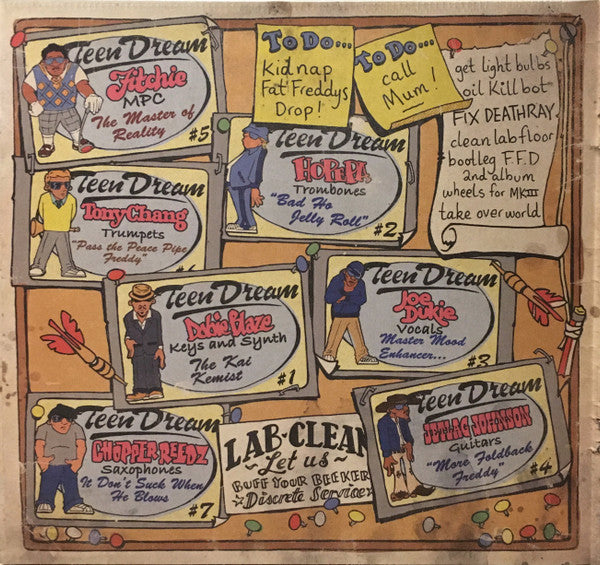 Teen Dream
Fitchie
MPC
The Master of
Reality
#5
To Do...
Kidnap
Fat Freddys
Drop!
To Do...
call
Mum!
get light bulbs
oil Kill bot
FIX DEATHRAY
clean lab floor
bootleg F.F.D
2nd album
wheels for MKIII
take over world
Teen Dream
HOPEPA
Trombones
"Bad Ho
Jelly Roll"
#2
Teen Dream
Tony Chang
Trumpets
"Pass the Peace Pipe
Freddy"
Teen Dream
Dobie Blaze
Keys and Synth
The Kai
Kemist
#1
Teen Dream
Joe
Dukie
Vocals
Master Mood
Enhancer...
#3
Teen Dream
CHOPPER REEDZ
Saxophones
It Don't Suck When
He Blows
#7
LAB-CLEAN
Let us
BUFF YOUR BEEKER
Discrete Service
Teen Dream
JETLAG JOHNSON
Guitars
"More Foldback
Freddy"
#4